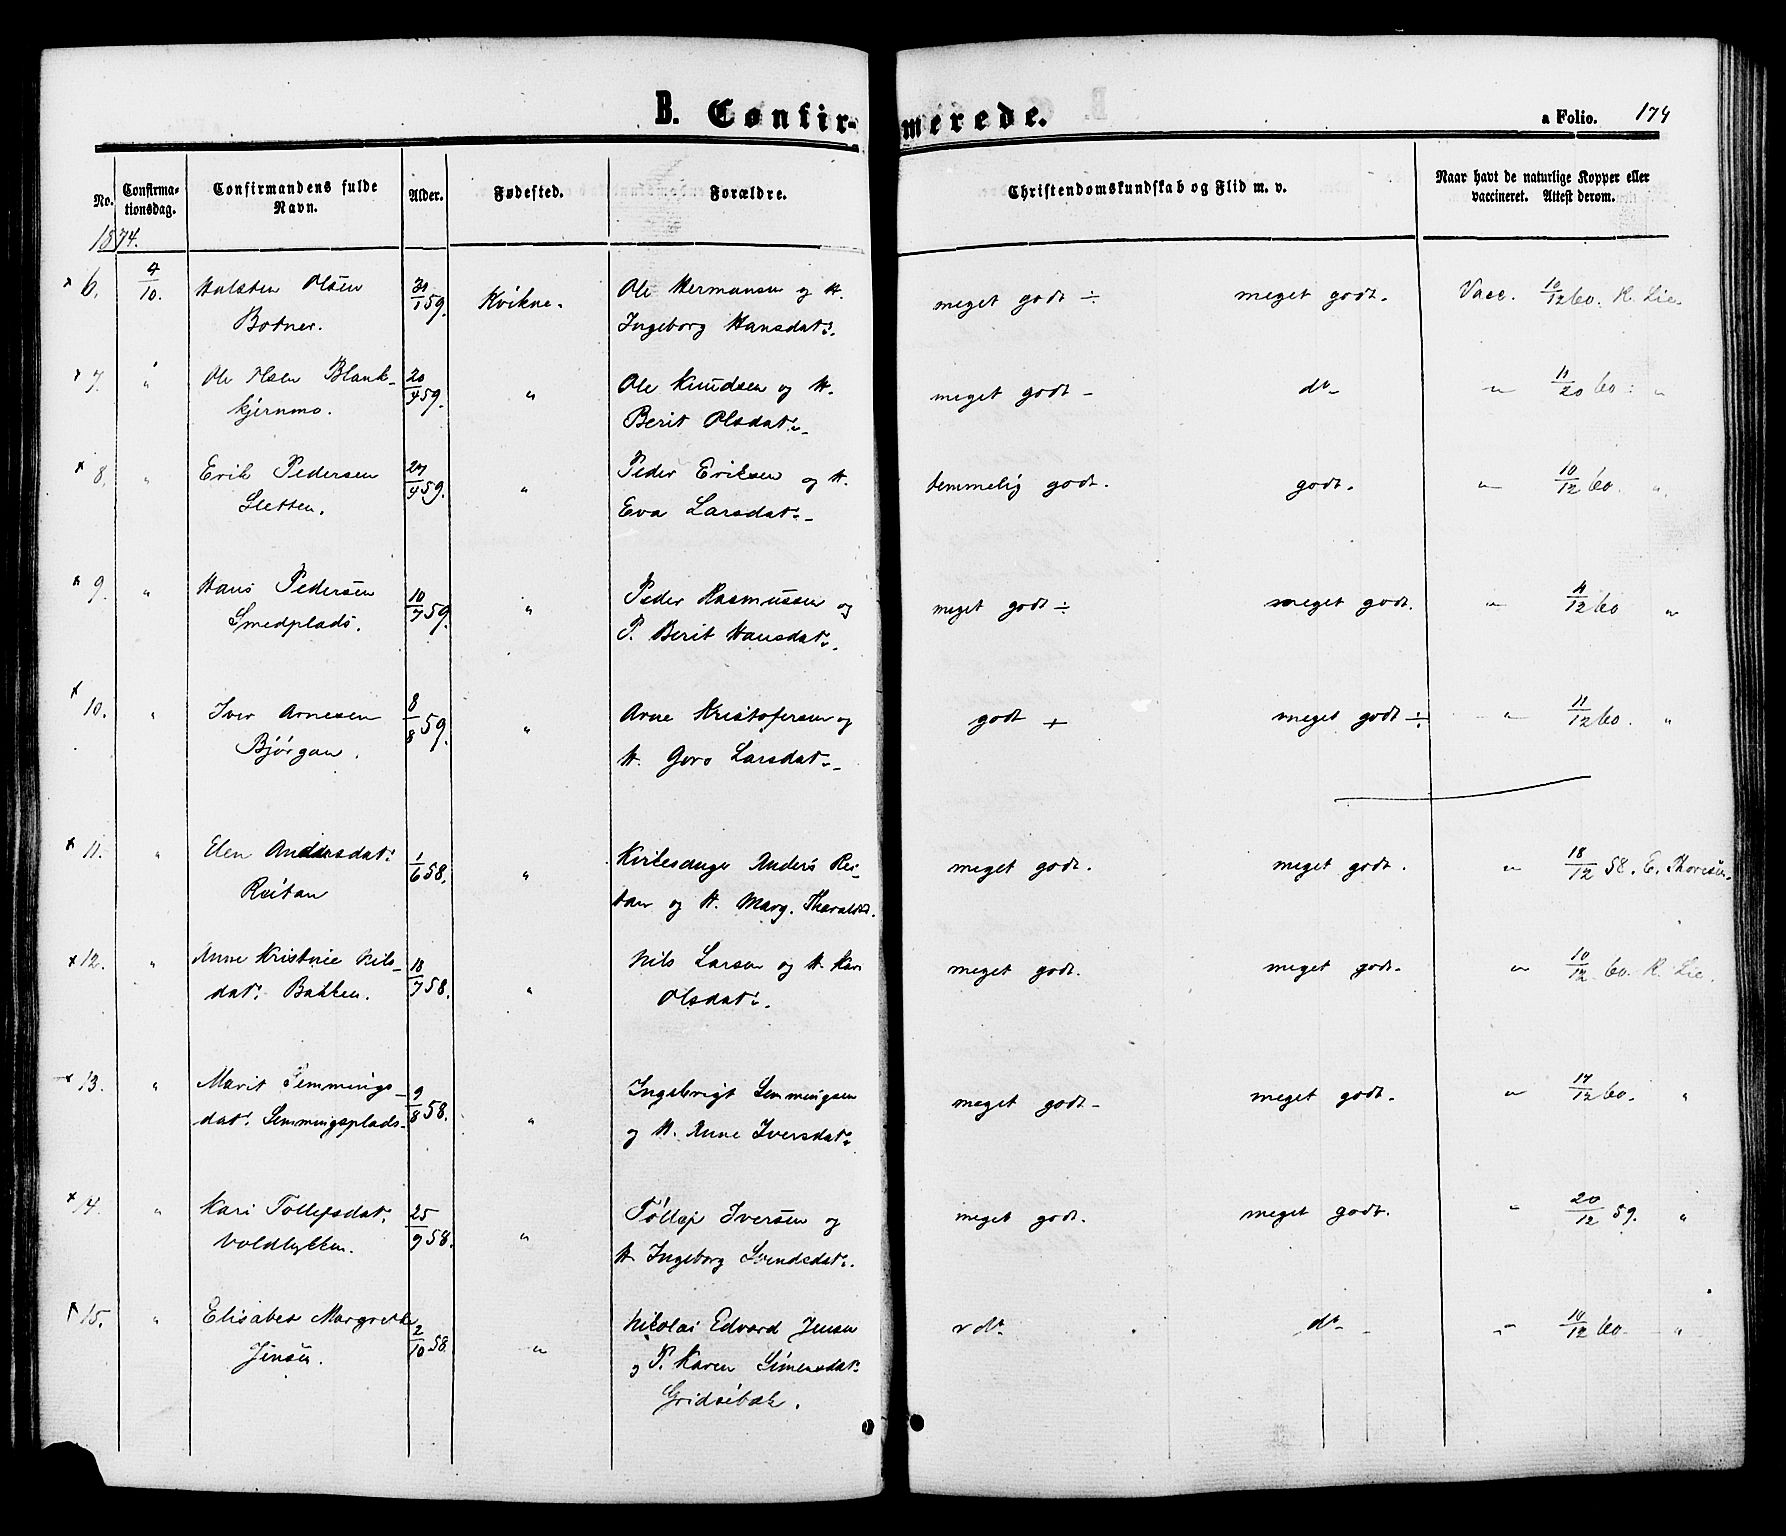 B. Confir-merede.
a Folio. 174
No.
Confirma-
tionsdag.
Confirmandens fulde
Navn.
Alder.
Fødested.
Forældre.
Christendomskundskab og Flid m. v.
Naar havt de naturlige Kopper eller
vaccineret. Attest derom.
1874.
x 6. 4/10. Halsten Olsen 30/1 59. Kvikne. Ole Hermansen og H. meget godt ÷ meget godt. Vacc. 10/12 60. K. Lie.
Botner. Ingeborg Hansdatr.
x 7. " Ole Olsen Blank- 20/4 59. " Ole Knudsen og H. meget godt - do - " 11/20 60. "
kjernmo. Berit Olsdatr.
x 8. " Erik Pedersen 24/4 59. " Peder Eriksen og H. temmelig godt. godt. " 10/12 60. "
Sletten. Eva Larsdatr.
x 9. " Hans Pedersen 10/7 59. " Peder Rasmussen og meget godt ÷ meget godt. " 11/12 60 "
Smedplads. P. Berit Hansdatr.
x 10. " Iver Arnesen 8/8 59. " Arne Kristofersen og godt + meget godt ÷ " 11/12 60. "
Bjørgan. H. Goro Larsdatr.
x 11. " Elen Andersdatr. 1/6 58. " Kirkesanger Anders Rei- meget godt. meget godt. " 18/12 58. E. Thoresen.
Reitan tan og H. Marg. Tharaldsd.
x 12. " Anne Kristine Nils- 18/7 58. " Nils Larsen og H. Kari meget godt. meget godt. " 10/12 60. K. Lie.
datr. Bakken. Olsdatr.
x 13. " Marit Semmings- 9/8 58. " Ingebrigt Semmingsen meget godt - meget godt. " 17/12 60. "
datr. Semmingsplads. og H. Anne Iversdatr.
x 14. " Kari Tollefsdatr. 25/9 58. " Tollef Iversen og meget godt. meget godt. " 20/12 59. "
Voldhytten. H. Ingeborg Svendsdatr.
15. " Elisabet Margrete 2/10 58. " Nikolai Edvard Jensen do - " 10/12 60 - "
Jensen. og P. Karen Simensdatr.
Gridsebæk.